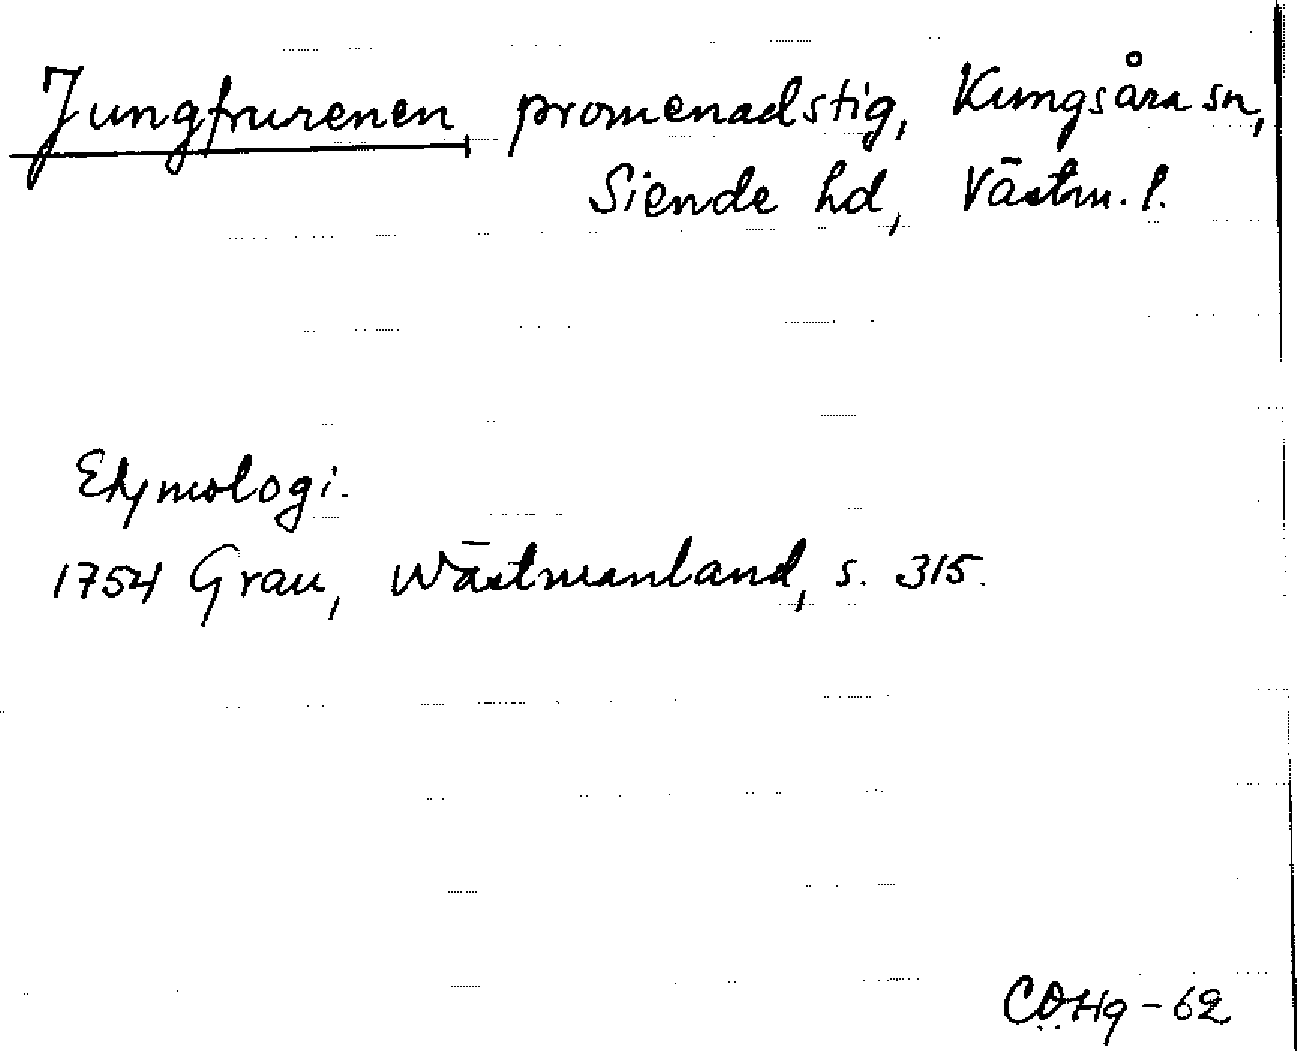 Jungfrurenen, promenadstig, Kungsåra sn,
Siende hd, Västm. l.
Etymologi.
1754 Grau, Wästmanland, s. 315.
-62